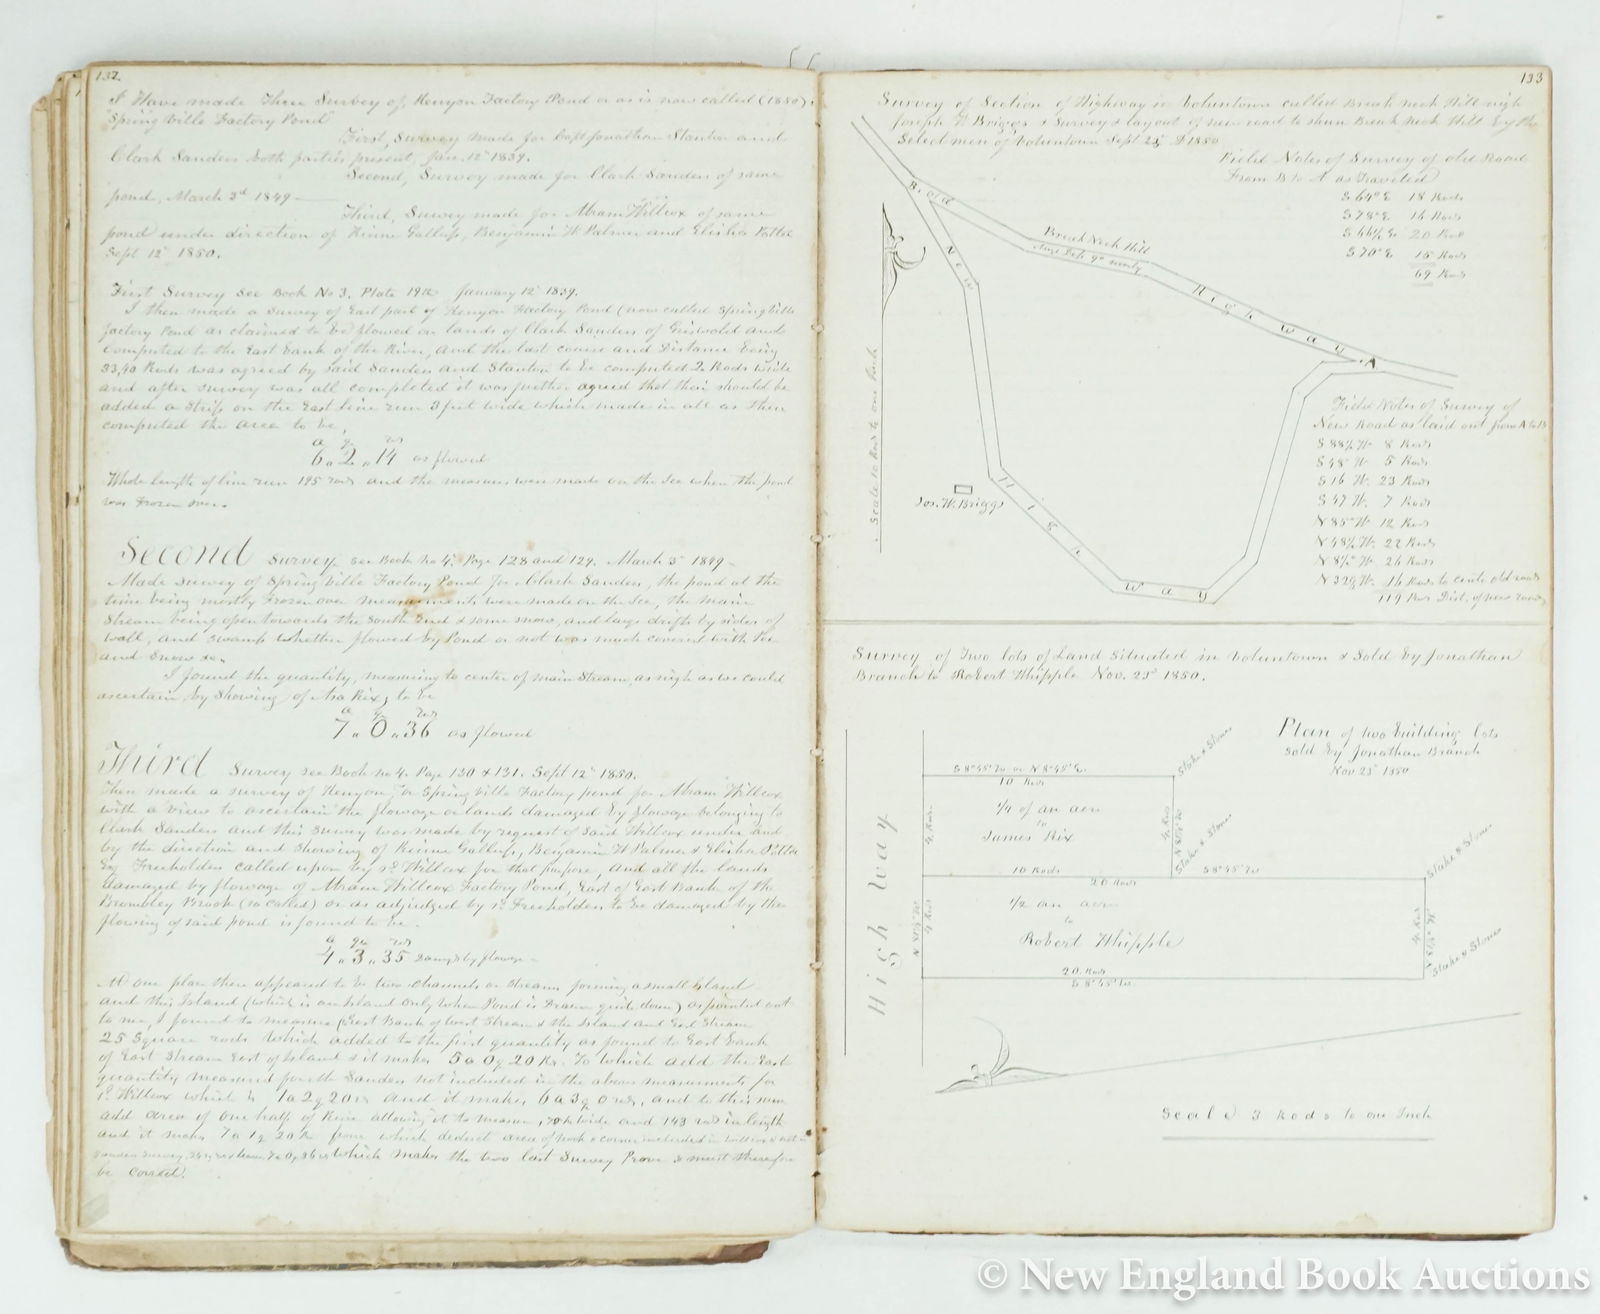 132.
I Have made Three Survey of Kenyon Factory Pond or as is now called (1850)
Spring Ville Factory Pond
First, Survey made for Capt Jonathan Stanton and
Clark Sanders both parties present, Jan. 12th 1839.
Second, Survey made for Clark Sanders of same
pond, March 3d 1849
Third, Survey made for Abram Willcox of same
pond under direction of Kinne Gallup, Benjamin W Palmer and Elisha Potter
Sept 12th 1850.
First Survey See Book No 3. Plate 19th January 12th 1839.
I then made a survey of East part of Kenyon Factory Pond (now called Springville
factory Pond as claimed to be flowed on lands of Clark Sanders of Griswold and
computed to the East bank of the River, and the last course and Distance being
33,40 Rods was agreed by said Sanders and Stanton to be computed 2 Rods wide
and after survey was all completed it was further agreed that their should be
added a Strip on the East line run 3 feet wide which made in all as then
computed the area to be,
a q rds
6 " 2 " 14 as flowed
Whole length of line run 195 rods and the measures were made on the Ice where the pond
was Frozen over.
Second Survey see Book No 4. Page 128 and 129. March 3d 1849
Made survey of Spring Ville Factory Pond for Clark Sanders, the pond at the
time being mostly Frozen over measurements were made on the Ice, the main
Stream being open towards the South End & some snow, and large drifts by sides of
wall, and swamp whether flowed by Pond or not was much covered with Ice
and Snow &c.
I found the quantity, measuring to center of main Stream, as nigh as we could
ascertain, by Showing of Asa Rix, to be
a q rds
7 " 0 " 36 as flowed
Third Survey see Book No 4. Page 130 & 131. Sept 12th 1850.
Then made a survey of Kenyon, or Spring Ville Factory pond for Abram Willcox
with a view to ascertain the flowage or lands damaged by flowage belonging to
Clark Sanders and this survey was made by request of said Willcox under and
by the direction and showing of Kinne Gallup, Benjamin W Palmer & Elisha Potter
Freeholders called upon by sd Willcox for that purpose, and all the lands
damaged by flowage of Abram Willcox Factory Pond, East of East Bank of the
Brook (so called) or as adjudged by sd Freeholders to be damaged by the
flowing of said pond is found to be
a qr rds
4 " 3 " 35 Damgd by flowage
At one place there appeared to be two channels or streams forming a small Island
and this Island (which is an Island only when Pond is Drawn quite down) as pointed out
to me, I found to measure (East Bank of West Stream & the Island and East Stream
25 Square rods which added to the first quantity as found to East bank
of East Stream East of Island & it makes 5a 0q 20 Rs. To which add the East
quantity measured for the Sanders not included in the above measurements for
sd Willcox which is 1a 2q 20rs and it makes 6a 3q 0rds, and to this sum
add area of one half of River allowing it to measure wide and 143 rods in length
and it makes 7a 1q 20R from which deduct area of nook & corner included in Willcox & not in
Sanders survey, leaves 7a 0q 36rs which makes the two last Survey Prove & must therefore
be correct.
133
Survey of Section of Highway in Voluntown called Break Neck Hill nigh
Joseph W. Briggs & Survey & layout of new road to shun Break Neck Hill by the
Selectmen of Voluntown Sept 25th 1850
Field Notes of Survey of old Road
From B to A as Traveled
S 64° E 18 Rods
S 78° E 16 Rods
S 66½ E 20 Rods
S 70° E 15 Rods
69 Rods
B. Old
Break Neck Hill
New
High way
A
Scale 10 Rods to one Inch
Jos. W. Briggs
High way
Field Notes of Survey of
New Road as laid out from A to B
S 88½ W 8 Rods
S 48° W 5 Rods
S 16 W. 23 Rods
S 47 W. 7 Rods
N 85° W 12 Rods
N 48½ W 22 Rods
N 8½° W 26 Rods
N 32½ W. 16 Rods to centre old road
119 Rods Dist. of new road
Survey of Two lots of Land Situated in Voluntown & Sold by Jonathan
Branch to Robert Whipple Nov. 25th 1850.
Plan of two building lots
sold by Jonathan Branch
Nov 25th 1850
Stake & Stones
S 8°45' W or N 8°45' E.
10 Rods
¼ of an acre
to
James Rix
4 Rods
4 Rods
N 81½° W
Stake & Stones
10 Rods
20 Rods
S 8°45' W
Stake & Stones
½ an acre
to
Robert Whipple
N 81½° W
4 Rods
4 Rods
N 81½ W
Stake & Stones
20 Rods
S 8°45' W.
High Way
Scale 3 Rods to one Inch
© New England Book Auctions